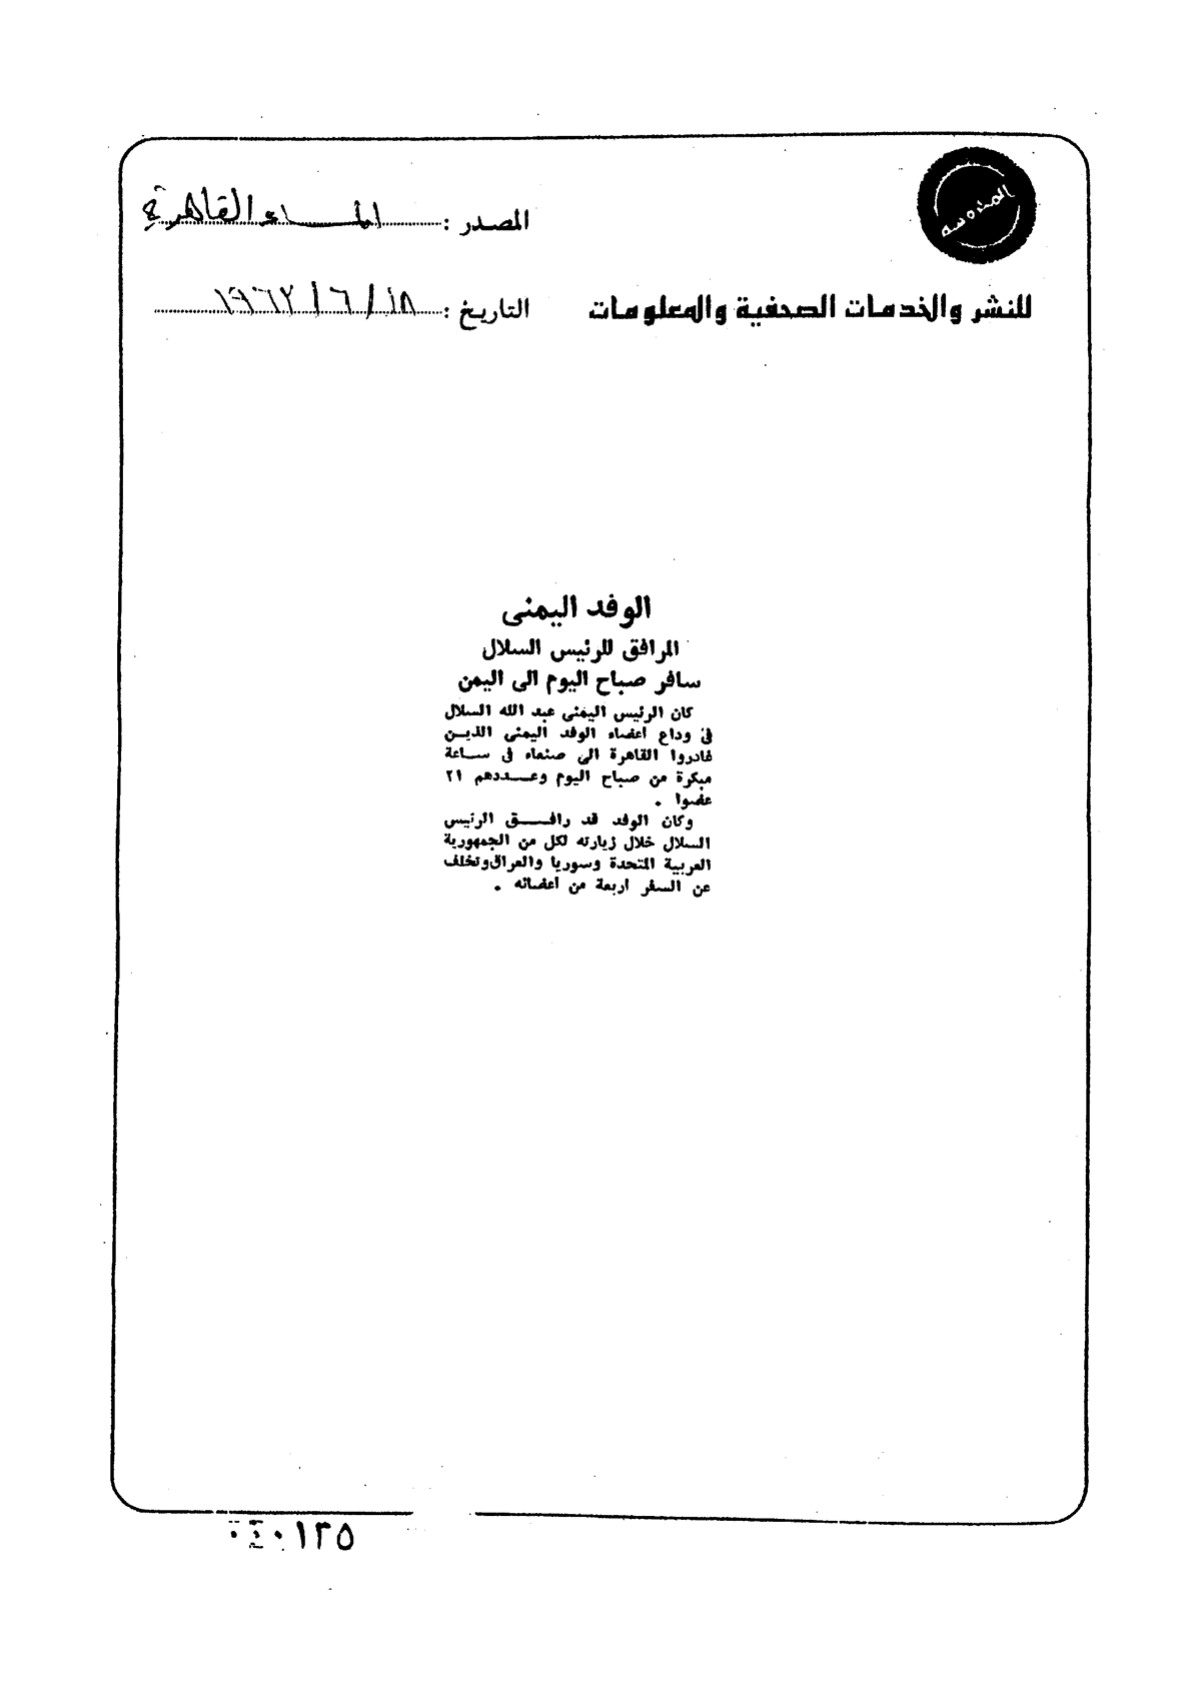 المدوسه
المصدر : المساء القاهرية
للنشر والخدمات الصحفية والمعلومات
التاريخ : ١٨ / ٦ / ١٩٦٧
الوفد اليمنى
المرافق للرئيس السلال
سافر صباح اليوم الى اليمن
كان الرئيس اليمنى عبد الله السلال
فى وداع اعضاء الوفد اليمنى الذين
غادروا القاهرة الى صنعاء فى ساعة
مبكرة من صباح اليوم وعددهم ٢١
عضوا .
وكان الوفد قد رافق الرئيس
السلال خلال زيارته لكل من الجمهورية
العربية المتحدة وسوريا والعراق وتخلف
عن السفر اربعة من اعضائه .
٠٤٠١٣٥